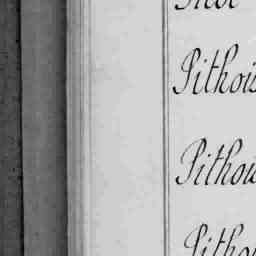 Pithois
Pithou
Pithou